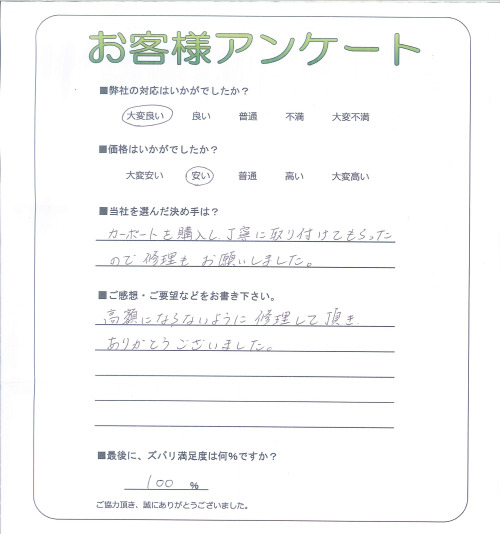 お客様アンケート
■弊社の対応はいかがでしたか？
大変良い 良い 普通 不満 大変不満
■価格はいかがでしたか？
大変安い 安い 普通 高い 大変高い
■当社を選んだ決め手は？
カーポートを購入し、丁寧に取り付けてもらった
ので修理もお願いしました。
■ご感想・ご要望などをお書き下さい。
高額にならないように修理して頂き、
ありがとうございました。
■最後に、ズバリ満足度は何%ですか？
100 %
ご協力頂き、誠にありがとうございました。